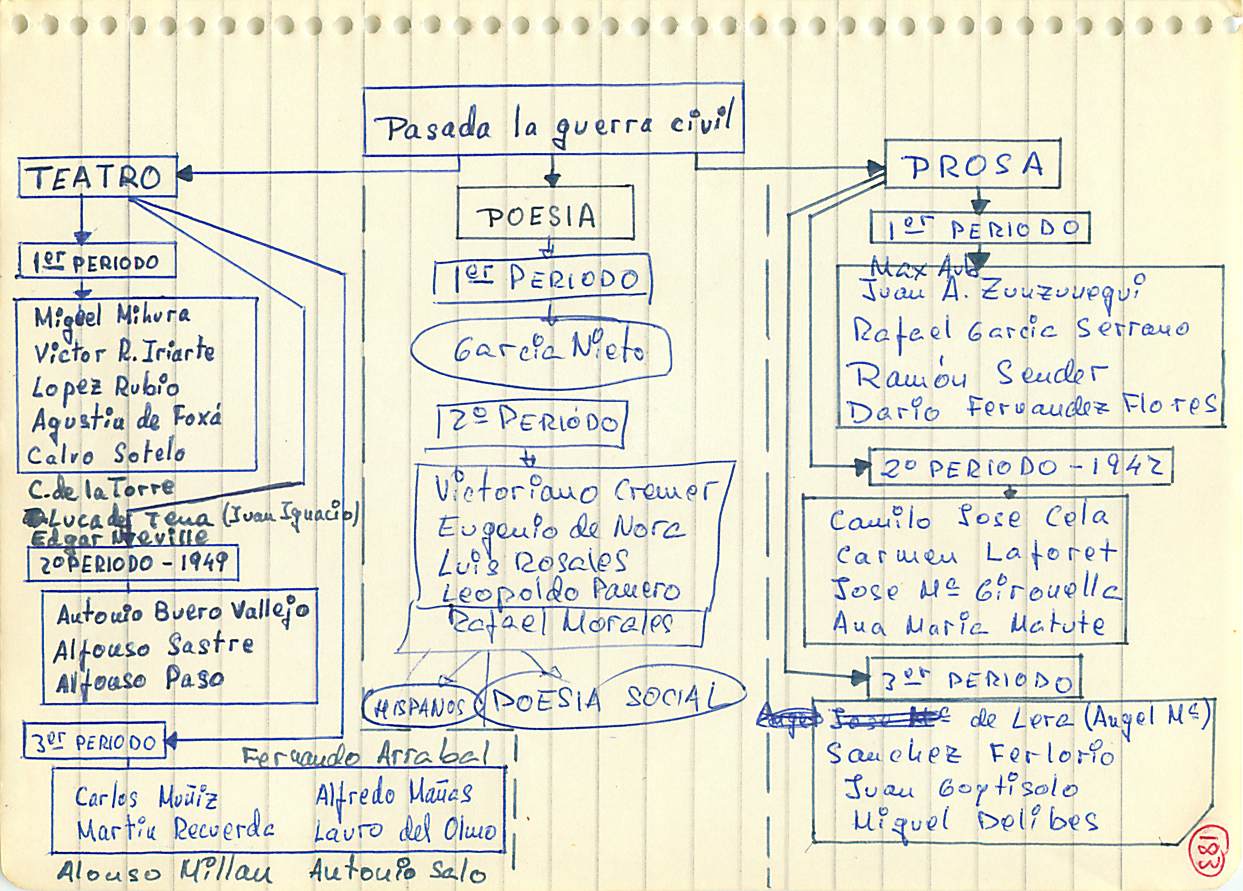 Pasada la guerra civil
TEATRO
1er PERIODO
Miguel Mihura
Victor R. Iriarte
Lopez Rubio
Agustin de Foxá
Calvo Sotelo
C. de la Torre
Luca de Tena (Juan Ignacio)
Edgar Neville
2º PERIODO - 1949
Antonio Buero Vallejo
Alfonso Sastre
Alfonso Paso
3er PERIODO
Fernando Arrabal
Carlos Muñiz Alfredo Mañas
Martin Recuerda Lauro del Olmo
Alonso Millan Antonio Salo
POESIA
1er PERIODO
Garcia Nieto
2º PERIÓDO
Victoriano Cremer
Eugenio de Nora
Luis Rosales
Leopoldo Panero
Rafael Morales
HISPANOS POESIA SOCIAL
PROSA
1er PERIODO
Max Aub
Juan A. Zunzunegui
Rafael Garcia Serrano
Ramón Sender
Dario Fernandez Flores
2º PERIODO - 1942
Camilo Jose Cela
Carmen Laforet
Jose Mª Gironella
Ana Maria Matute
3er PERIODO
Angel Jose Mª de Lera (Angel Mª)
Sanchez Ferlorio
Juan Goytisolo
Miguel Delibes
183